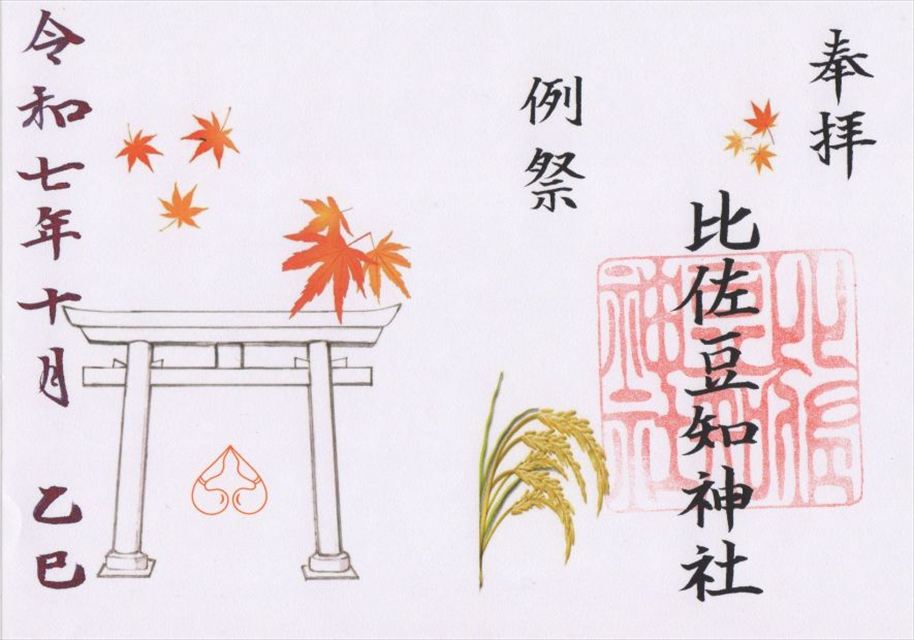 奉拝
比佐豆知神社
例祭
令和七年十月 乙巳
比佐豆知神社